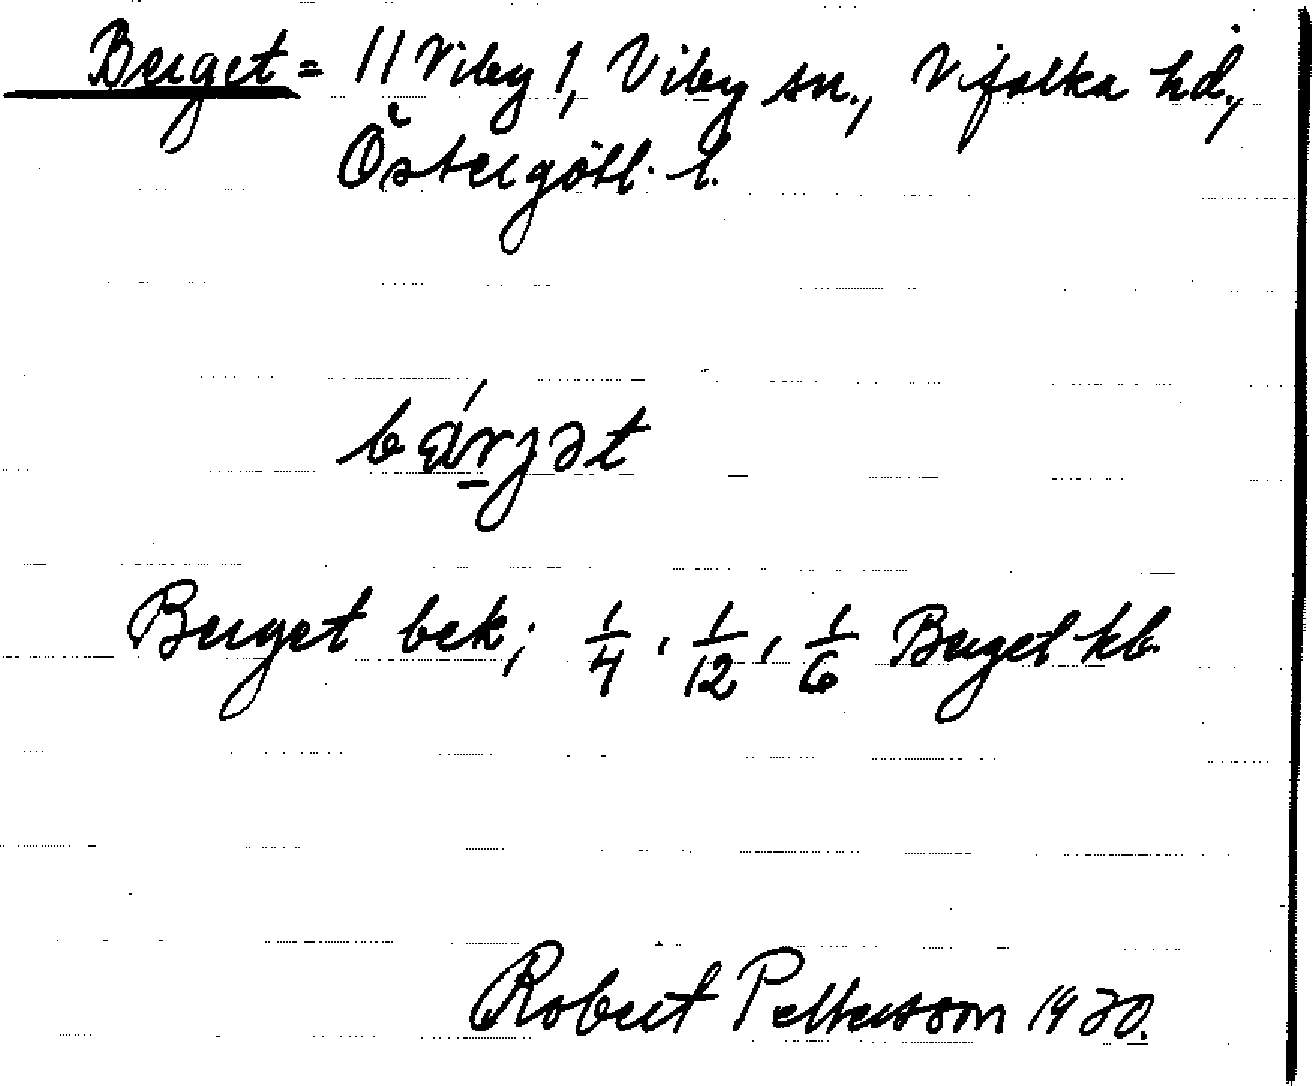 Berget = // Viby 1, Viby sn., Vifolka hd.,
Östergötl. l.
bárjət
Berget bek; 1/4, 1/12, 1/6 Berget kb.
Robert Pettersson 1930.